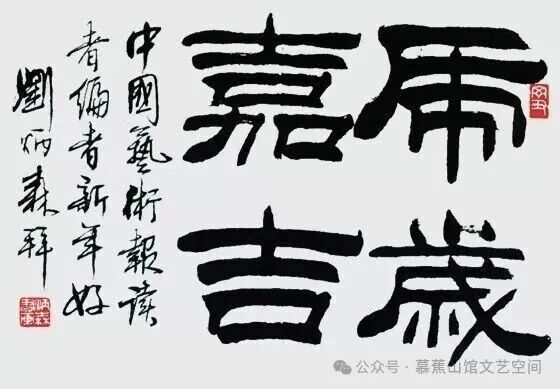 虎歲
嘉吉
中國藝術報读
者编者新年好
劉炳森拜
公众号·慕蕉山馆文艺空间